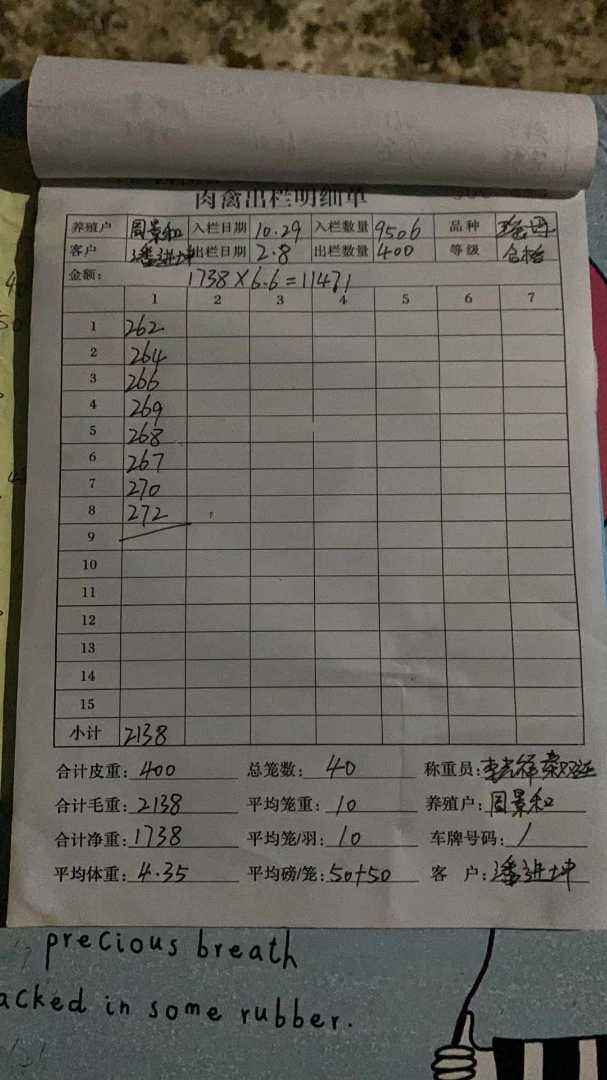 肉禽出栏明细单
养殖户 周景和 入栏日期 10.29 入栏数量 9506 品种
客户 潘进坤 出栏日期 2.8 出栏数量 400 等级 合格
金额: 1738×6.6=11471
1 2 3 4 5 6 7
1 262
2 264
3 266
4 269
5 268
6 267
7 270
8 272
9
10
11
12
13
14
15
小计 2138
合计皮重: 400 总笼数: 40 称重员:
合计毛重: 2138 平均笼重: 10 养殖户: 周景和
合计净重: 1738 平均笼/羽: 10 车牌号码: /
平均体重: 4.35 平均磅/笼: 50+50 客 户: 潘进坤
precious breath
acked in some rubber.